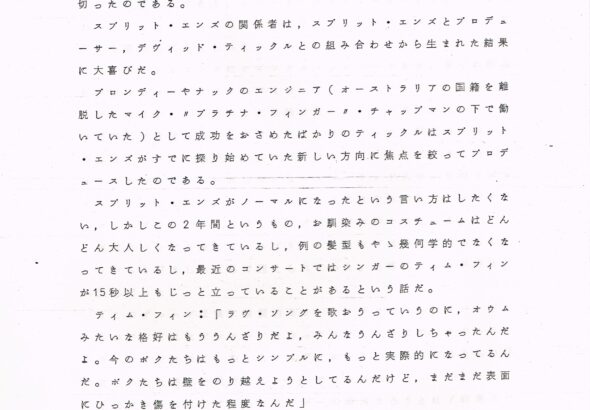 切ったのである。
スプリット・エンズの関係者は，スプリット・エンズとプロデュ
ーサー，デヴィッド・ティックルとの組み合わせから生まれた結果
に大喜びだ。
ブロンディーやナックのエンジニア（オーストラリアの国籍を離
脱したマイク・〃プラチナ・フィンガー〃・チャップマンの下で働
いていた）として成功をおさめたばかりのティックルはスプリット
・エンズがすでに探り始めていた新しい方向に焦点を絞ってプロデ
ュースしたのである。
スプリット・エンズがノーマルになったという言い方はしたくな
い，しかしこの2年間というもの，お馴染みのコスチュームはどん
どん大人しくなってきているし，例の髪型もやゝ幾何学的でなくな
ってきているし，最近のコンサートではシンガーのティム・フィン
が15秒以上もじっと立っていることがあるという話だ。
ティム・フィン：「ラヴ・ソングを歌おうっていうのに，オウム
みたいな格好はもううんざりだよ，みんなうんざりしちゃったんだ
よ。今のボクたちはもっとシンプルに，もっと実際的になってるん
だ。ボクたちは壁をのり越えようとしてるんだけど，まだまだ表面
にひっかき傷を付けた程度なんだ」